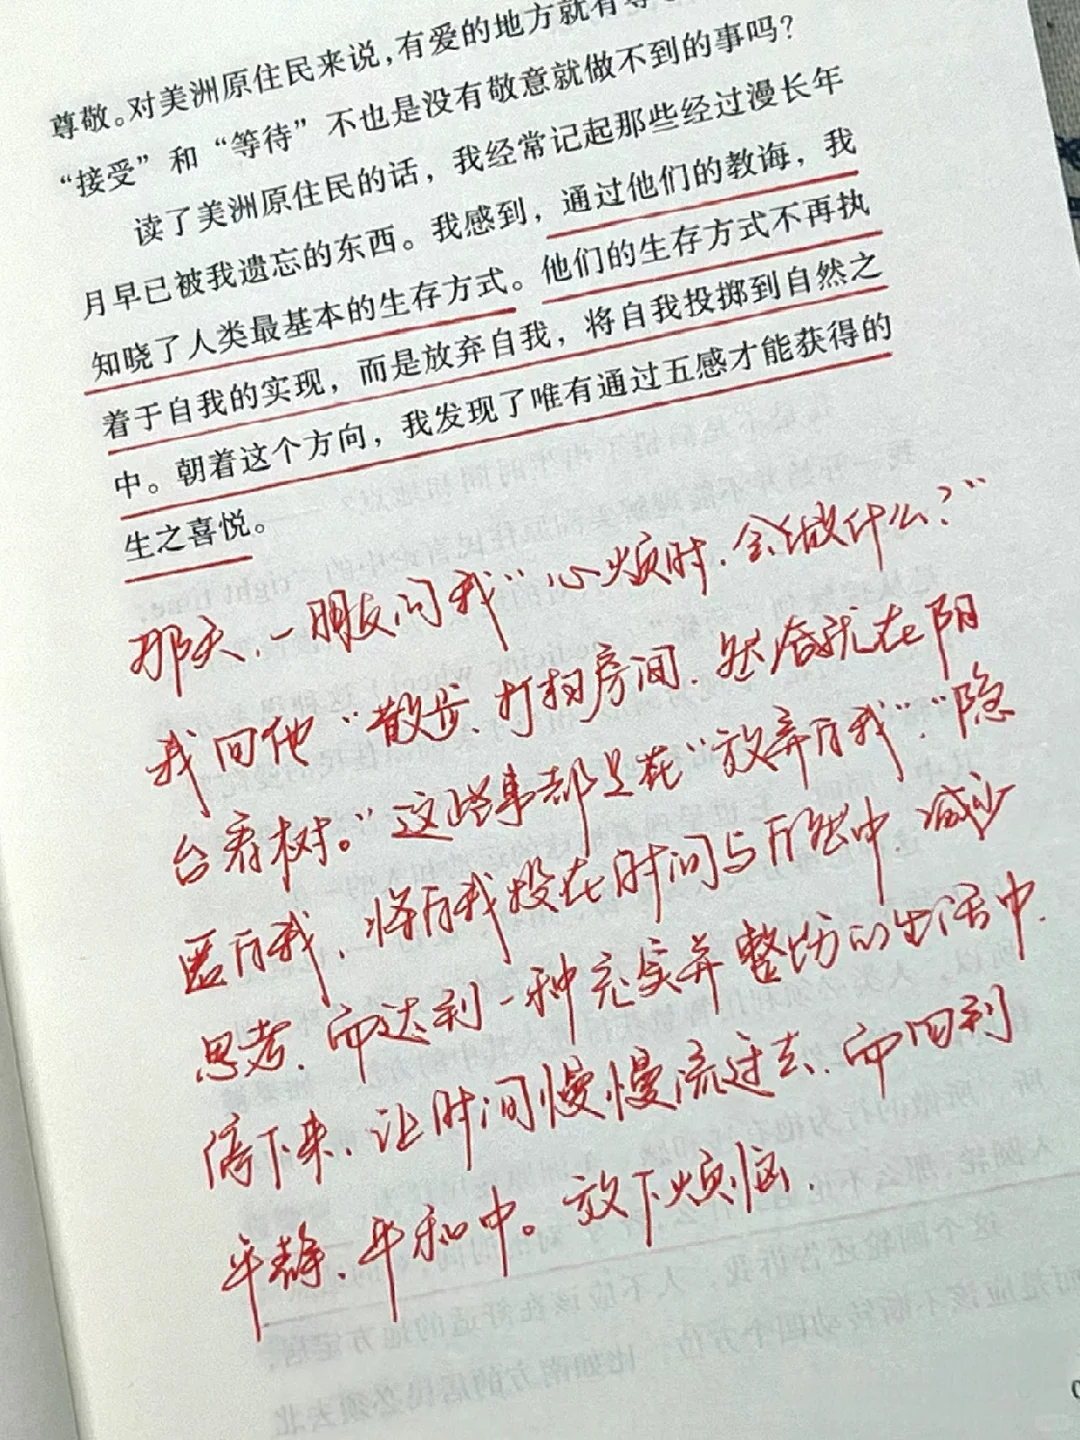 对美洲原住民来说，有爱的地方就有尊
尊敬。对美洲原住民来说，有爱的地方就有
“接受”和“等待”不也是没有敬意就做不到的事吗？
读了美洲原住民的话，我经常记起那些经过漫长年
月早已被我遗忘的东西。我感到，通过他们的教诲，我
知晓了人类最基本的生存方式。他们的生存方式不再执
着于自我的实现，而是放弃自我，将自我投掷到自然之
中。朝着这个方向，我发现了唯有通过五感才能获得的
生之喜悦。
那天，一朋友问我“心烦时，会做什么？”
我回他“散步、打扫房间，然后就在阳
台看树。”这些事都是在“放弃自我”“隐
匿自我，将自我投在时间与自然中，减少
思考，而达到一种充实并整饬的生活中，
停下来，让时间慢慢流过去，而回到
平静、平和中。放下烦恼，